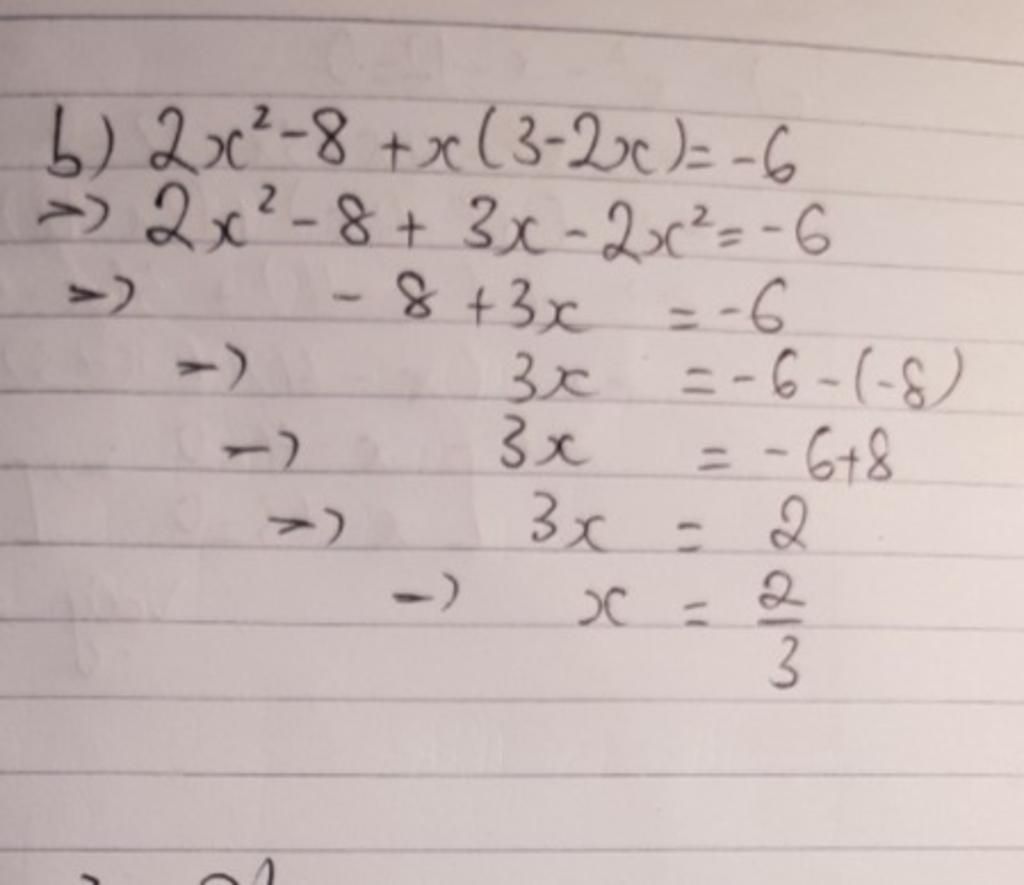 b) 2x²-8 +x(3-2x)= -6
=> 2x²-8+ 3x-2x²= -6
=> -8 +3x = -6
=> 3x = -6-(-8)
=> 3x = -6+8
=> 3x = 2
=> x = 2/3